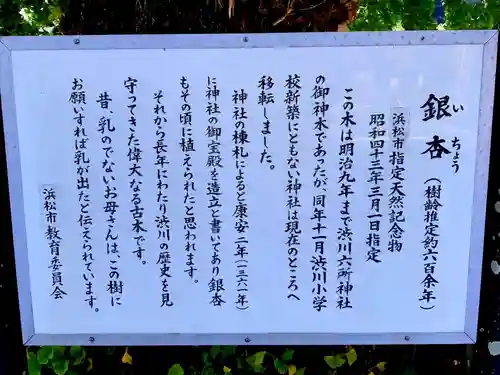 銀杏（樹齢推定約六百余年）
いちょう
浜松市指定天然記念物
昭和四十三年三月一日指定
この木は明治九年まで渋川六所神社
の御神木であったが、同年十一月渋川小学
校新築にともない神社は現在のところへ
移転しました。
神社の棟札によると康安二年（一三六一年）
に神社の御宝殿を造立と書いてあり銀杏
もその頃に植えられたと思われます。
それから長年にわたり渋川の歴史を見
守ってきた偉大なる古木です。
昔、乳のでないお母さんは、この樹に
お願いすれば乳が出たと伝えられています。
浜松市教育委員会